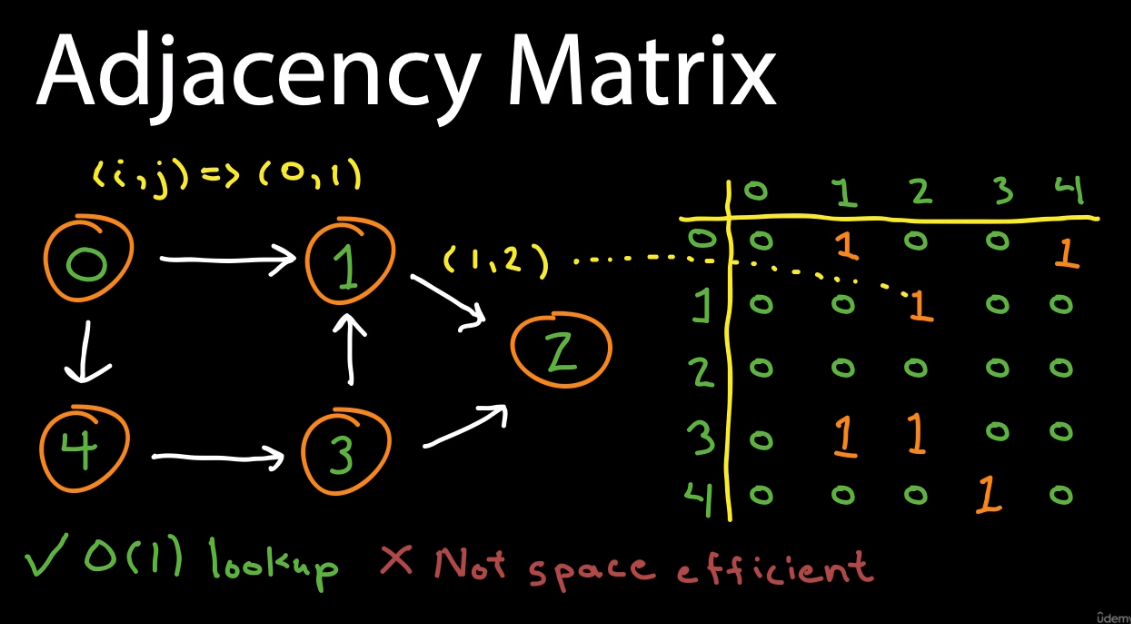 Adjacency Matrix
(i,j) => (0,1)
0 1 2 3 4
0 1 (1,2) 0 0 1 0 0 1
1 0 0 1 0 0
2 2 0 0 0 0 0
4 3 3 0 1 1 0 0
4 0 0 0 1 0
✓ O(1) lookup ✗ Not space efficient
ûdemy